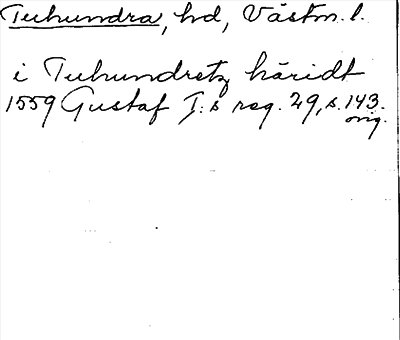 Tuhundra, hd, Västm. l.
i Tuhundretz häridt
1559 Gustaf I:s reg. 29, s. 143.
orig.